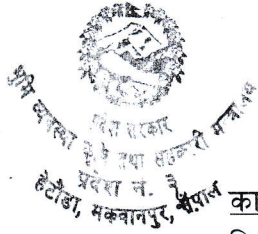 प्रदेश सरकार
भूमि व्यवस्था कृषि तथा सहकारी मन्त्रालय
प्रदेश नं. ३
हेटौंडा, मकवानपुर, नेपाल
का